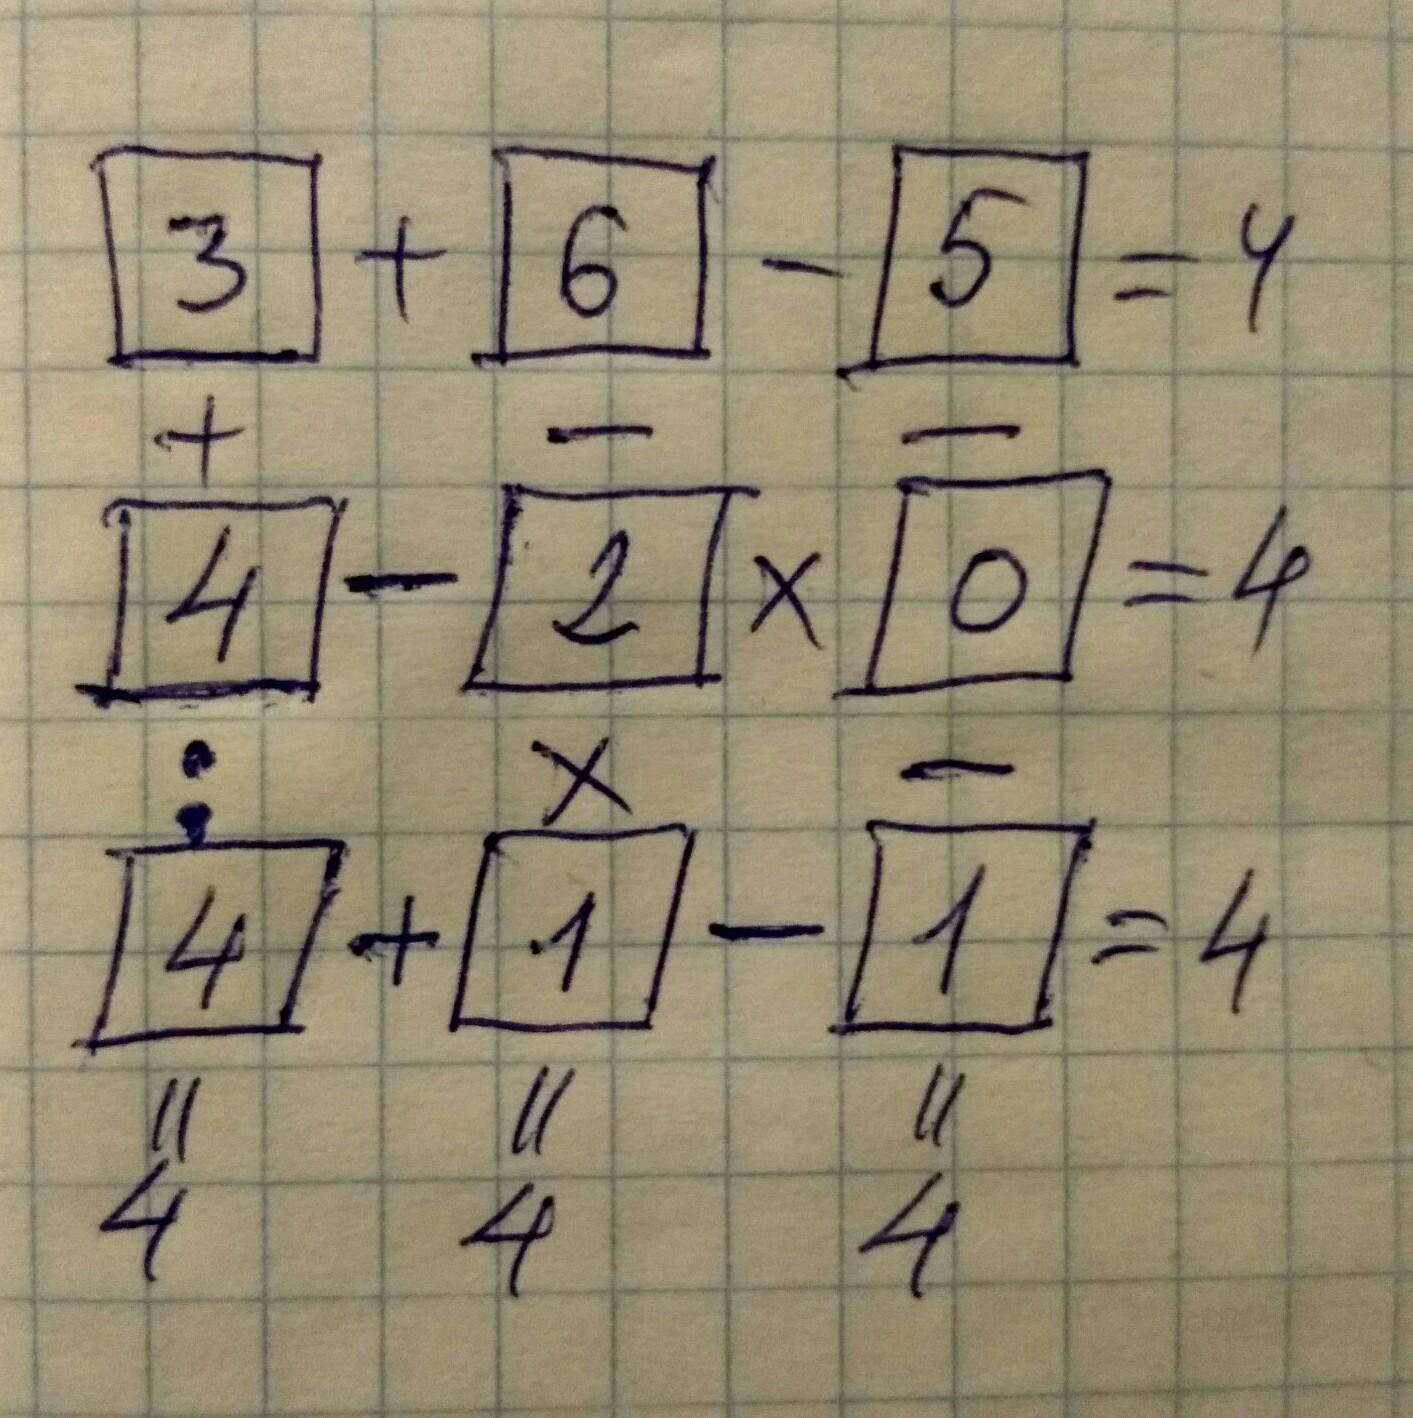 3 + 6 - 5 = 4
+ - -
4 - 2 × 0 = 4
: × -
4 + 1 - 1 = 4
= = =
4 4 4